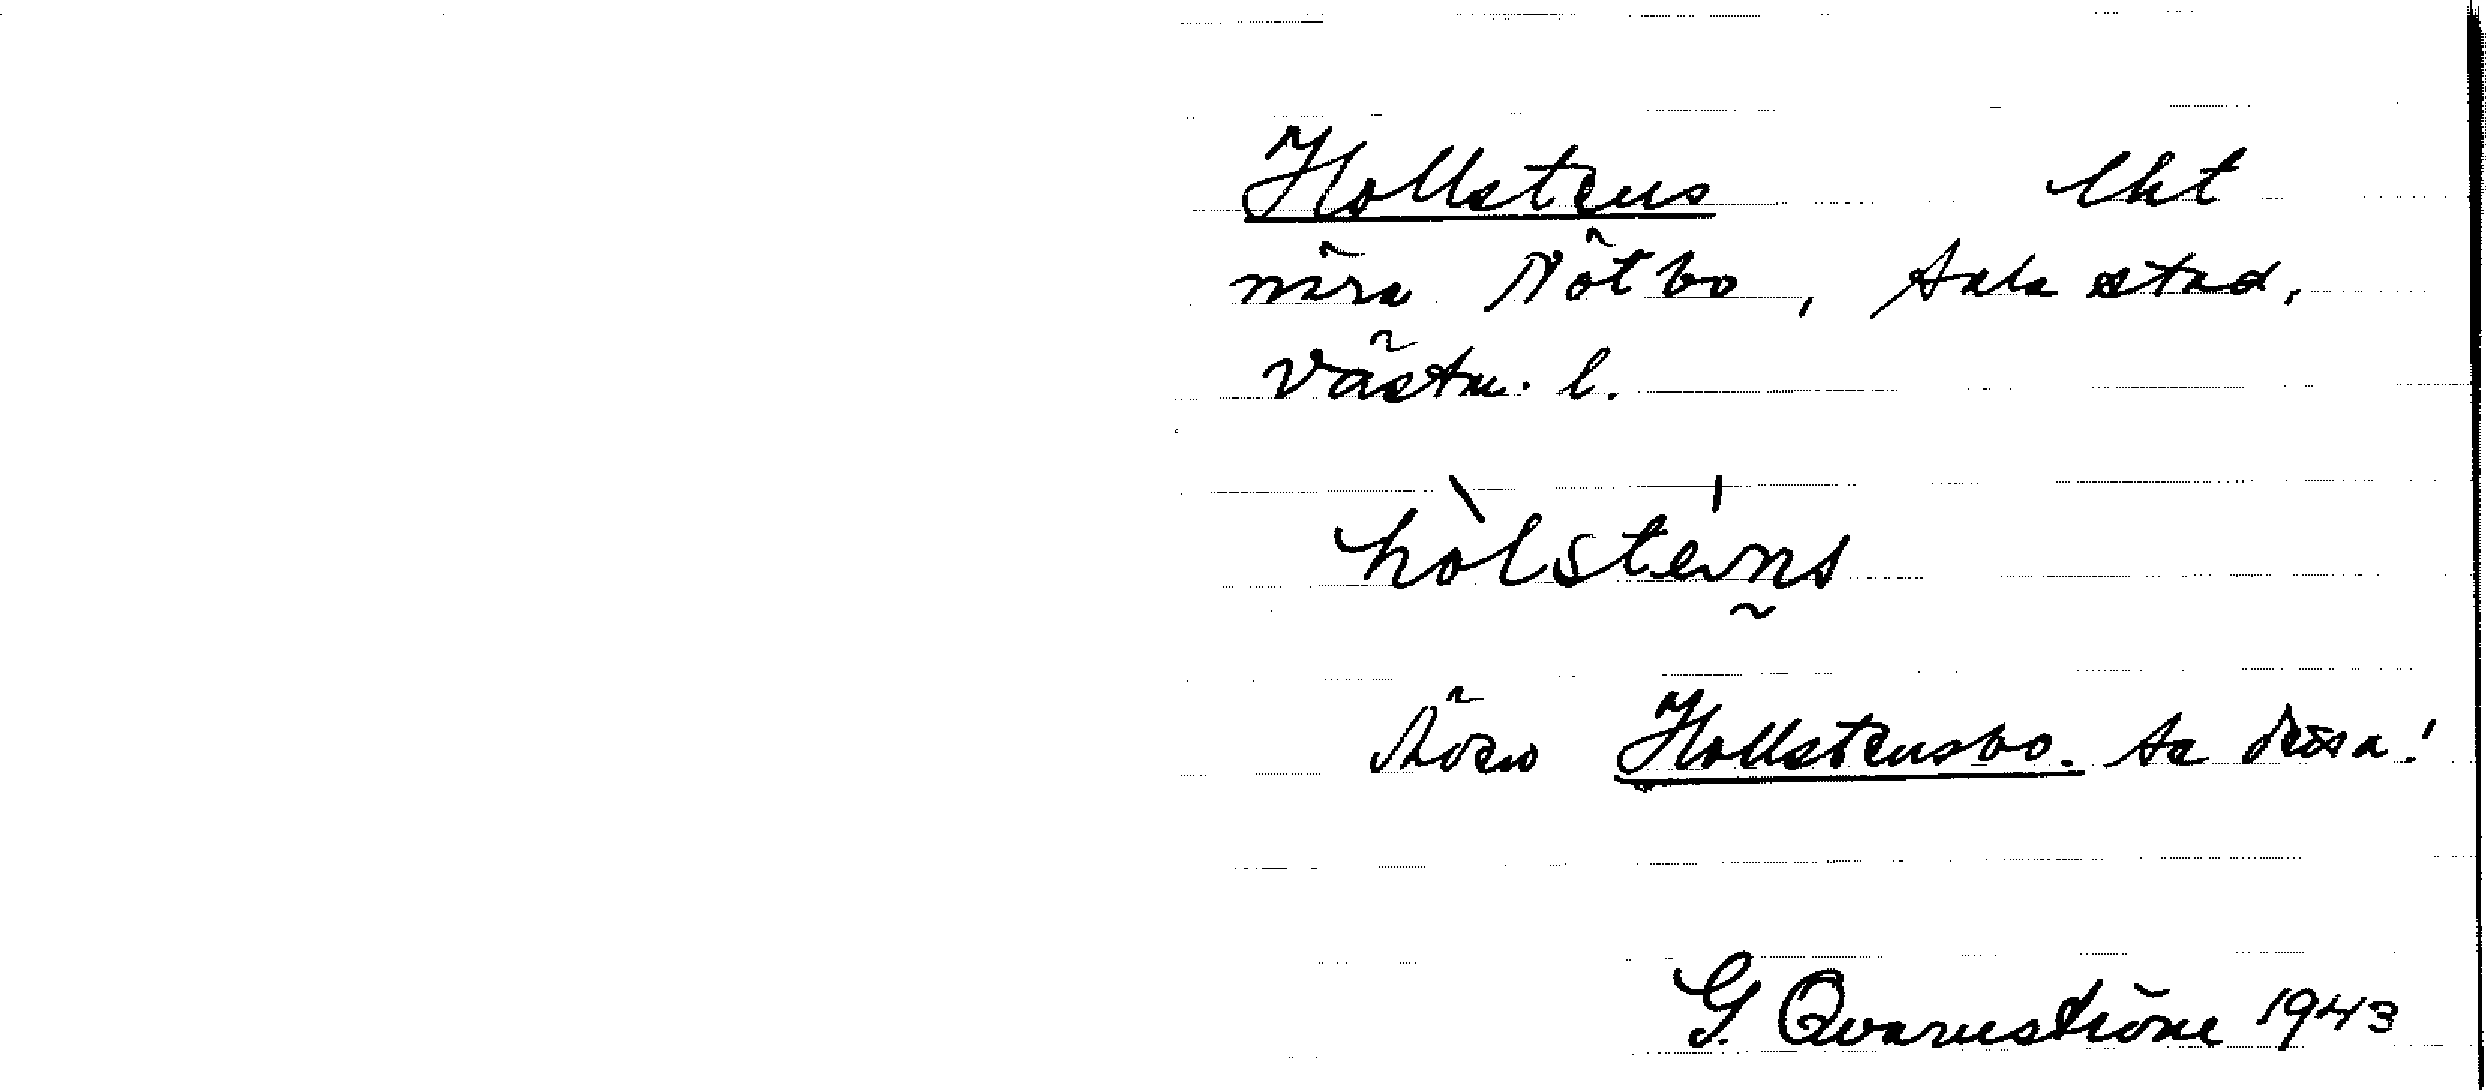 Hollstens lht
nära Nötbo, Sala stad,
Västm. l.
hòlsténs
Även Hollstensbo. Se dessa!
G. Qvarnström 1943